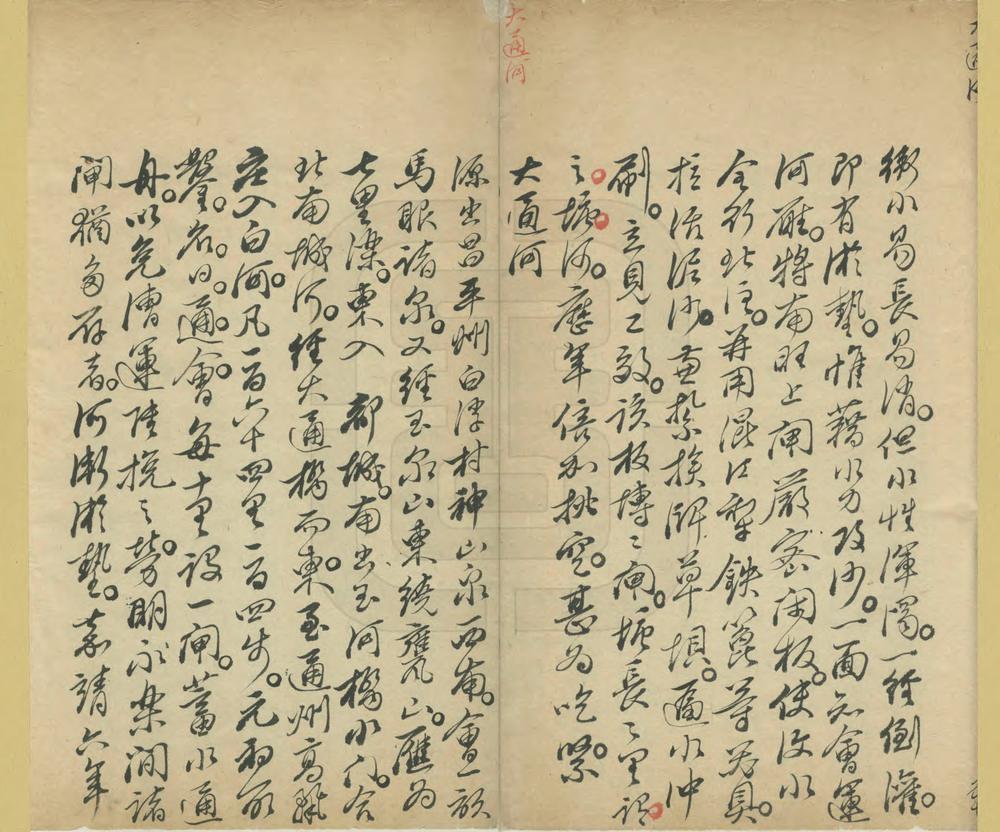 大通河
衛水易長易消但水性渾濁一經倒灌
即有淤墊惟藉水力攻沙一面知會運
河廳將南旺上閘嚴密閉板使汶水
全行北注並用混江犁鐵篦等器具
拉活泥沙並紮挨牌草壩逼水沖
刷立見工效該板博二閘塘長三里謂
之塘河應年倍加挑空甚為吃緊
大通河
源出昌平州白浮村神山泉西南會一畝
馬眼諸泉又經玉泉山東繞甕山匯為
七里濼東入都城南出玉河橋水門合
北南城河經大通橋而東至通州高麗
莊入白河凡一百六十四里一百四步元初所
鑿名曰通會每十里設一閘蓄水通
舟以免漕運陸挽之勞明永樂間諸
閘猶多存者河漸淤墊嘉靖六年